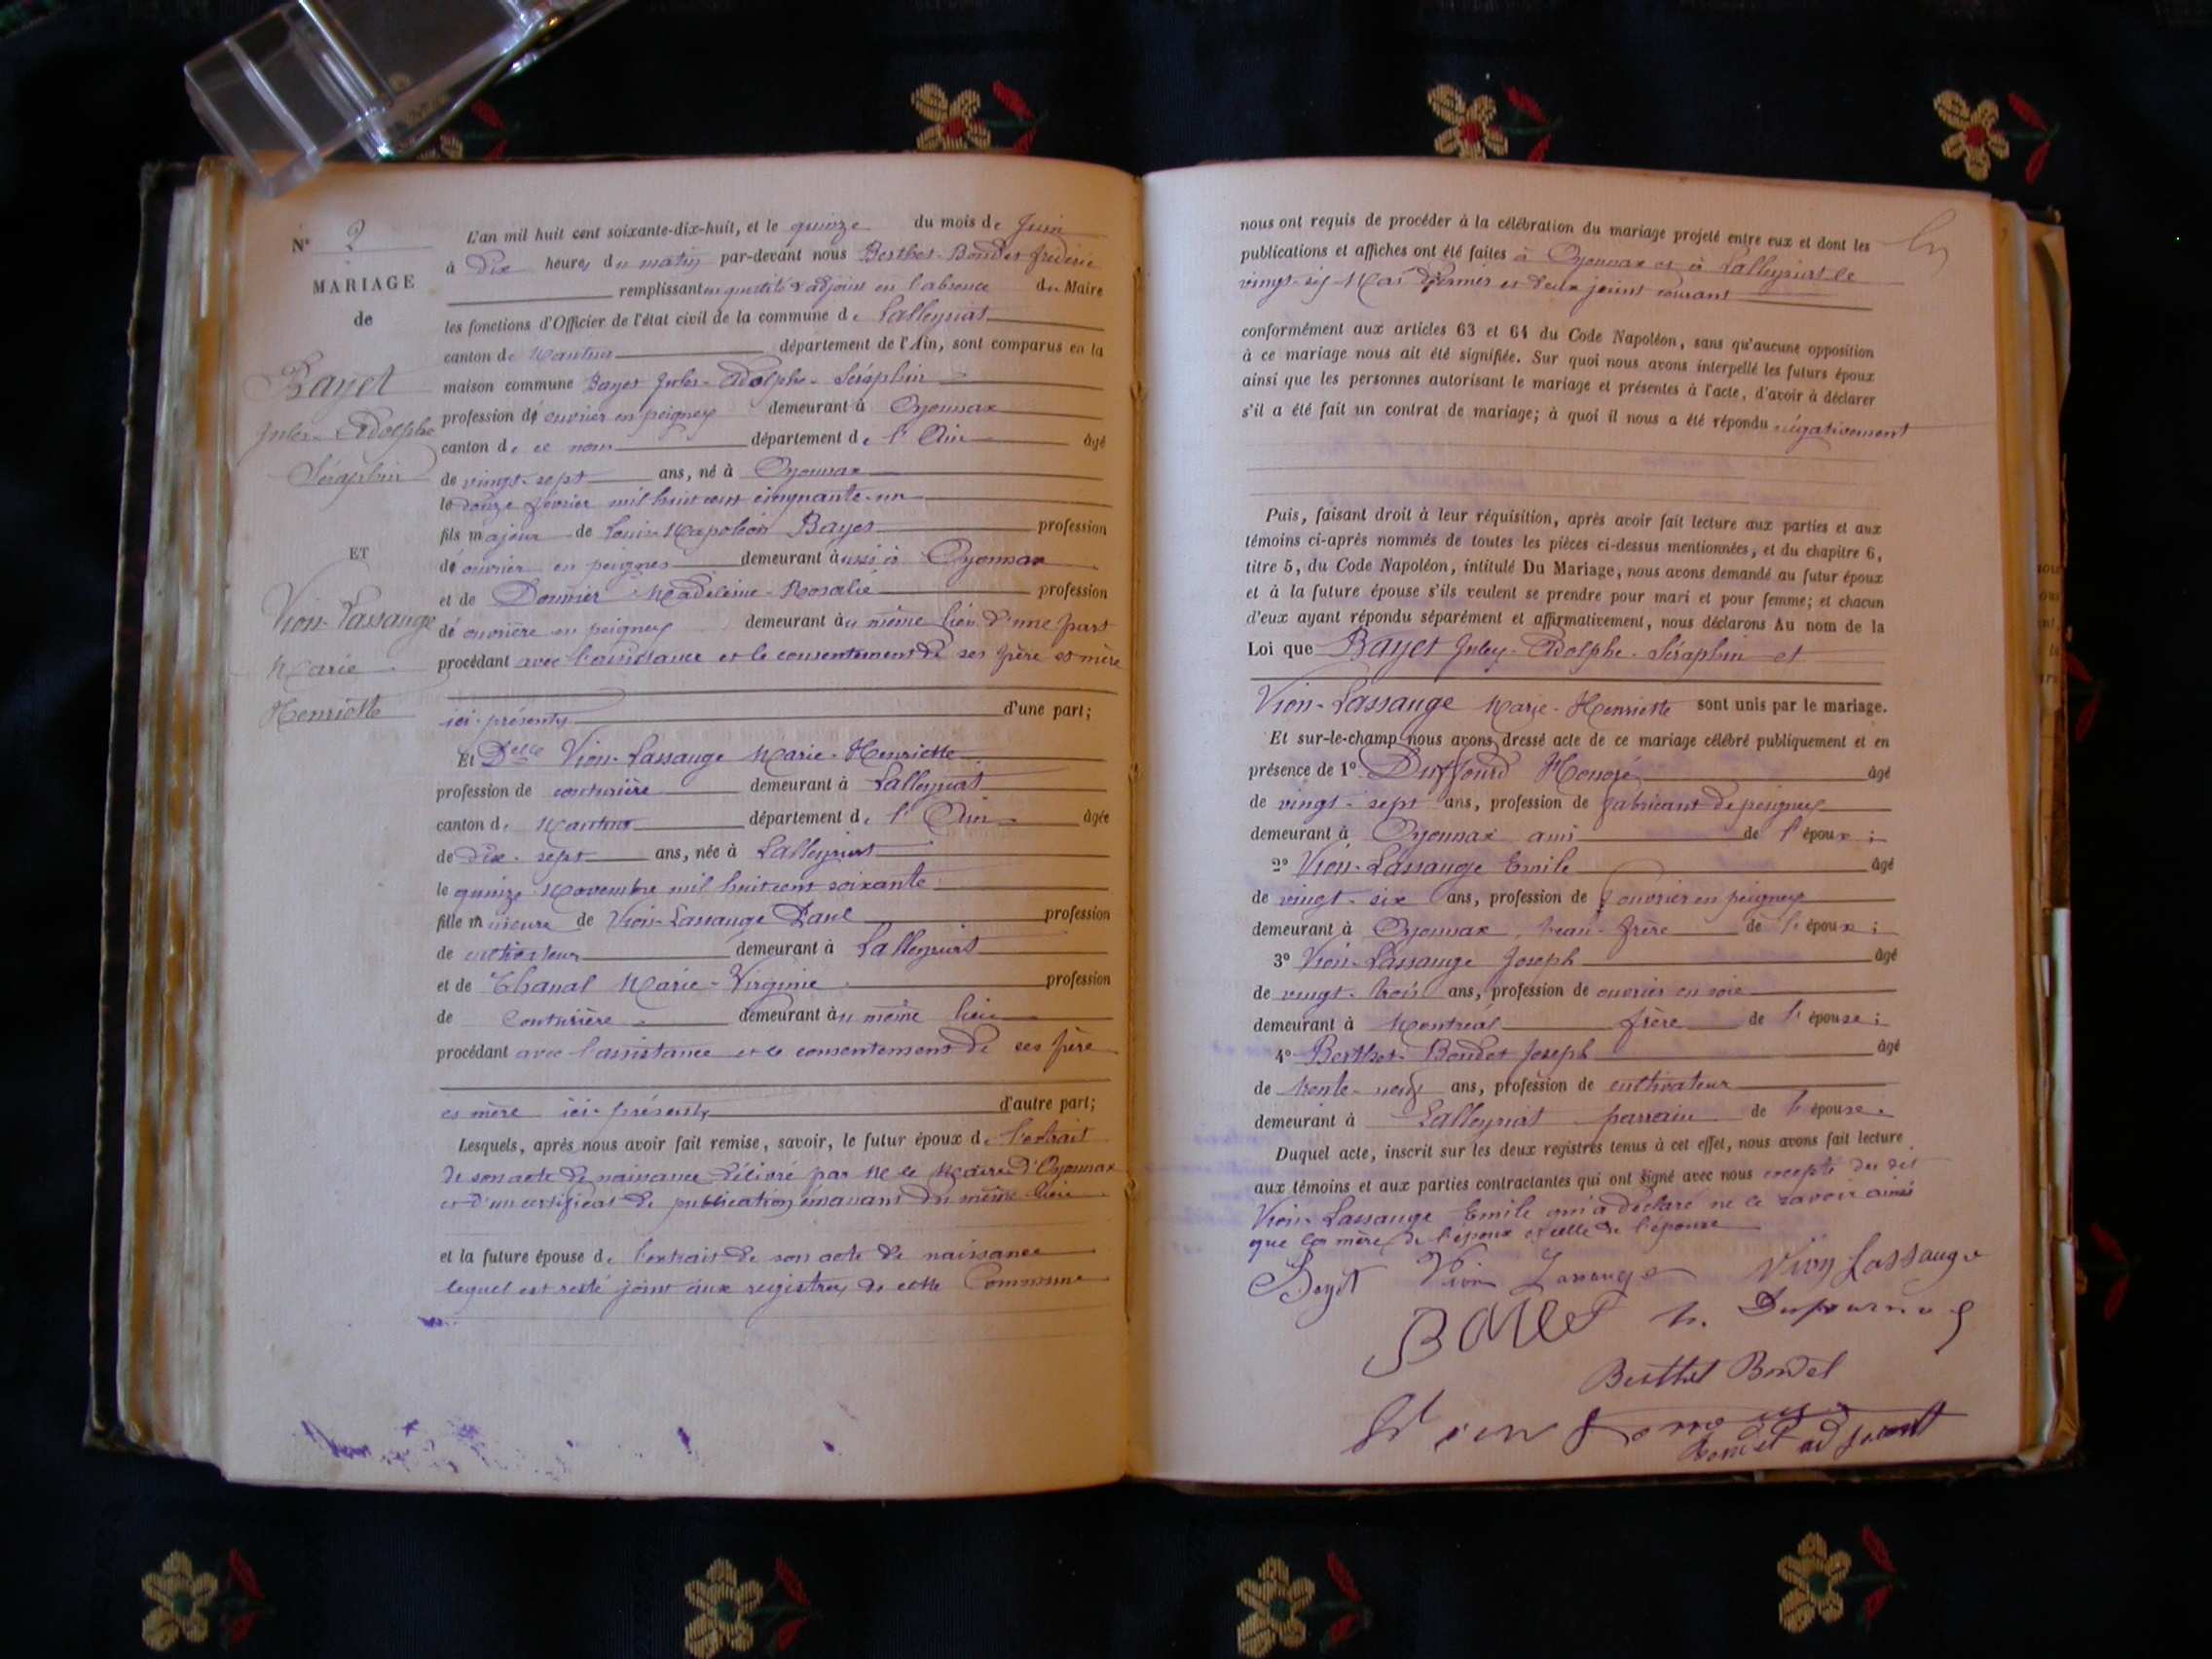 N° 2
MARIAGE
de
Bayet
Jules-Adolphe
Séraphin
ET
Vion-Lassauge
Marie
Henriette
L'an mil huit cent soixante-dix-huit, et le quinze du mois de Juin
à Dix heures du matin par-devant nous Berthet-Bondet Fréderic
remplissant en qualité d'adjoint en l'absence du Maire
les fonctions d'Officier de l'état civil de la commune de Lalleyriat
canton de Nantua département de l'Ain, sont comparus en la
maison commune Bayet Jules-Adolphe-Séraphin
profession d' ouvrier en peignes demeurant à Oyonnax
canton de ce nom département de l'Ain âgé
de vingt-sept ans, né à Oyonnax
le douze février mil huit cent cinquante-un
fils majeur de Louis-Napoléon Bayet profession
d' ouvrier en peignes demeurant aussi à Oyonnax
et de Madeleine-Rosalie profession
d' ouvrière en peignes demeurant au même lieu d'une part
procédant avec l'assistance et le consentement de ses père et mère
ici-présents d'une part;
Et Delle Vion-Lassauge Marie-Henriette
profession de couturière demeurant à Lalleyriat
canton de Nantua département de l'Ain âgée
de Dix-sept ans, née à Lalleyriat
le quinze Novembre mil huit cent soixante
fille mineure de Vion-Lassauge Paul profession
de cultivateur demeurant à Lalleyriat
et de Chanal Marie-Virginie profession
de Couturière demeurant au même lieu
procédant avec l'assistance et le consentement de ses père
et mère ici-présents d'autre part;
Lesquels, après nous avoir fait remise, savoir, le futur époux de l'extrait
de son acte de naissance délivré par M le Maire d'Oyonnax
et d'un certificat de publication émanant du même lieu
et la future épouse de l'extrait de son acte de naissance
lequel est resté joint aux registres de cette Commune
nous ont requis de procéder à la célébration du mariage projeté entre eux et dont les
publications et affiches ont été faites à Oyonnax et à Lalleyriat le
vingt-six Mai dernier et deux juin courant
conformément aux articles 63 et 64 du Code Napoléon, sans qu'aucune opposition
à ce mariage nous ait été signifiée. Sur quoi nous avons interpellé les futurs époux
ainsi que les personnes autorisant le mariage et présentes à l'acte, d'avoir à déclarer
s'il a été fait un contrat de mariage; à quoi il nous a été répondu négativement
Puis, faisant droit à leur réquisition, après avoir fait lecture aux parties et aux
témoins ci-après nommés de toutes les pièces ci-dessus mentionnées, et du chapitre 6,
titre 5, du Code Napoléon, intitulé Du Mariage, nous avons demandé au futur époux
et à la future épouse s'ils veulent se prendre pour mari et pour femme; et chacun
d'eux ayant répondu séparément et affirmativement, nous déclarons Au nom de la
Loi que Bayet Jules-Adolphe-Séraphin et
Vion-Lassauge Marie-Henriette sont unis par le mariage.
Et sur-le-champ nous avons dressé acte de ce mariage célébré publiquement et en
présence de 1° Honoré âgé
de vingt-sept ans, profession de fabricant de peignes
demeurant à Oyonnax ami de l'époux;
2° Vion-Lassauge Emile âgé
de vingt-six ans, profession de ouvrier en peignes
demeurant à Oyonnax, beau-frère de l'époux;
3° Vion-Lassauge Joseph âgé
de vingt-trois ans, profession de ouvrier en soie
demeurant à Montréal frère de l'épouse;
4° Berthet-Bondet Joseph âgé
de trente-neuf ans, profession de cultivateur
demeurant à Lalleyriat parrain de l'épouse.
Duquel acte, inscrit sur les deux registres tenus à cet effet, nous avons fait lecture
aux témoins et aux parties contractantes qui ont signé avec nous excepté du dit
Vion-Lassauge Emile qui a déclaré ne le savoir ainsi
que la mère de l'époux et celle de l'épouse
Bayet Vion Lassauge Vion Lassauge
Berthet Bondet
Bondet adjoint